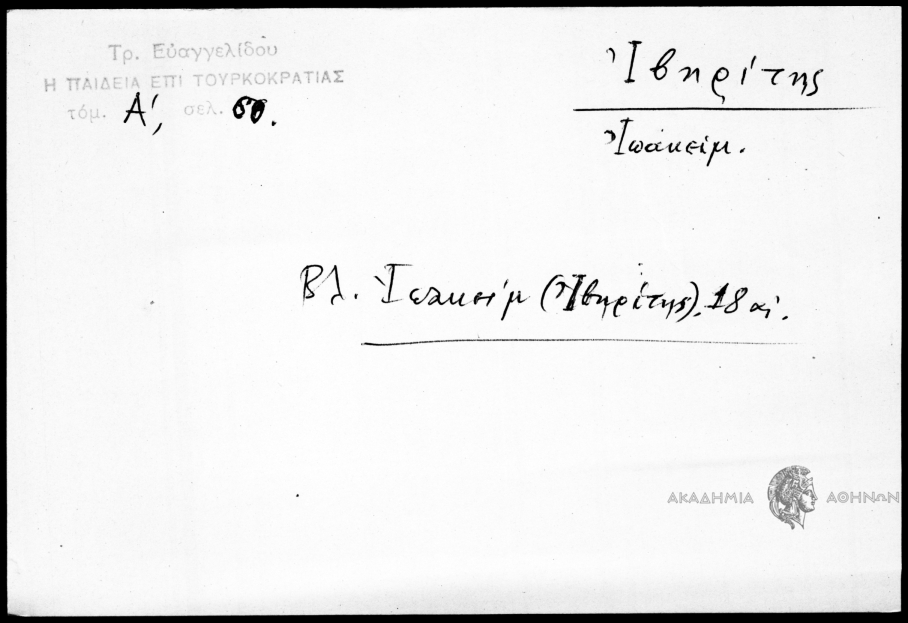 Τρ. Εὐαγγελίδου
Η ΠΑΙΔΕΙΑ ΕΠΙ ΤΟΥΡΚΟΚΡΑΤΙΑΣ
τόμ. Α', σελ. 60.
Ἰβηρίτης
Ἰωάκείμ.
Βλ. Ἰωακείμ (Ἰβηρίτης). 18 αἰ.
ΑΚΑΔΗΜΙΑ ΑΘΗΝΩΝ